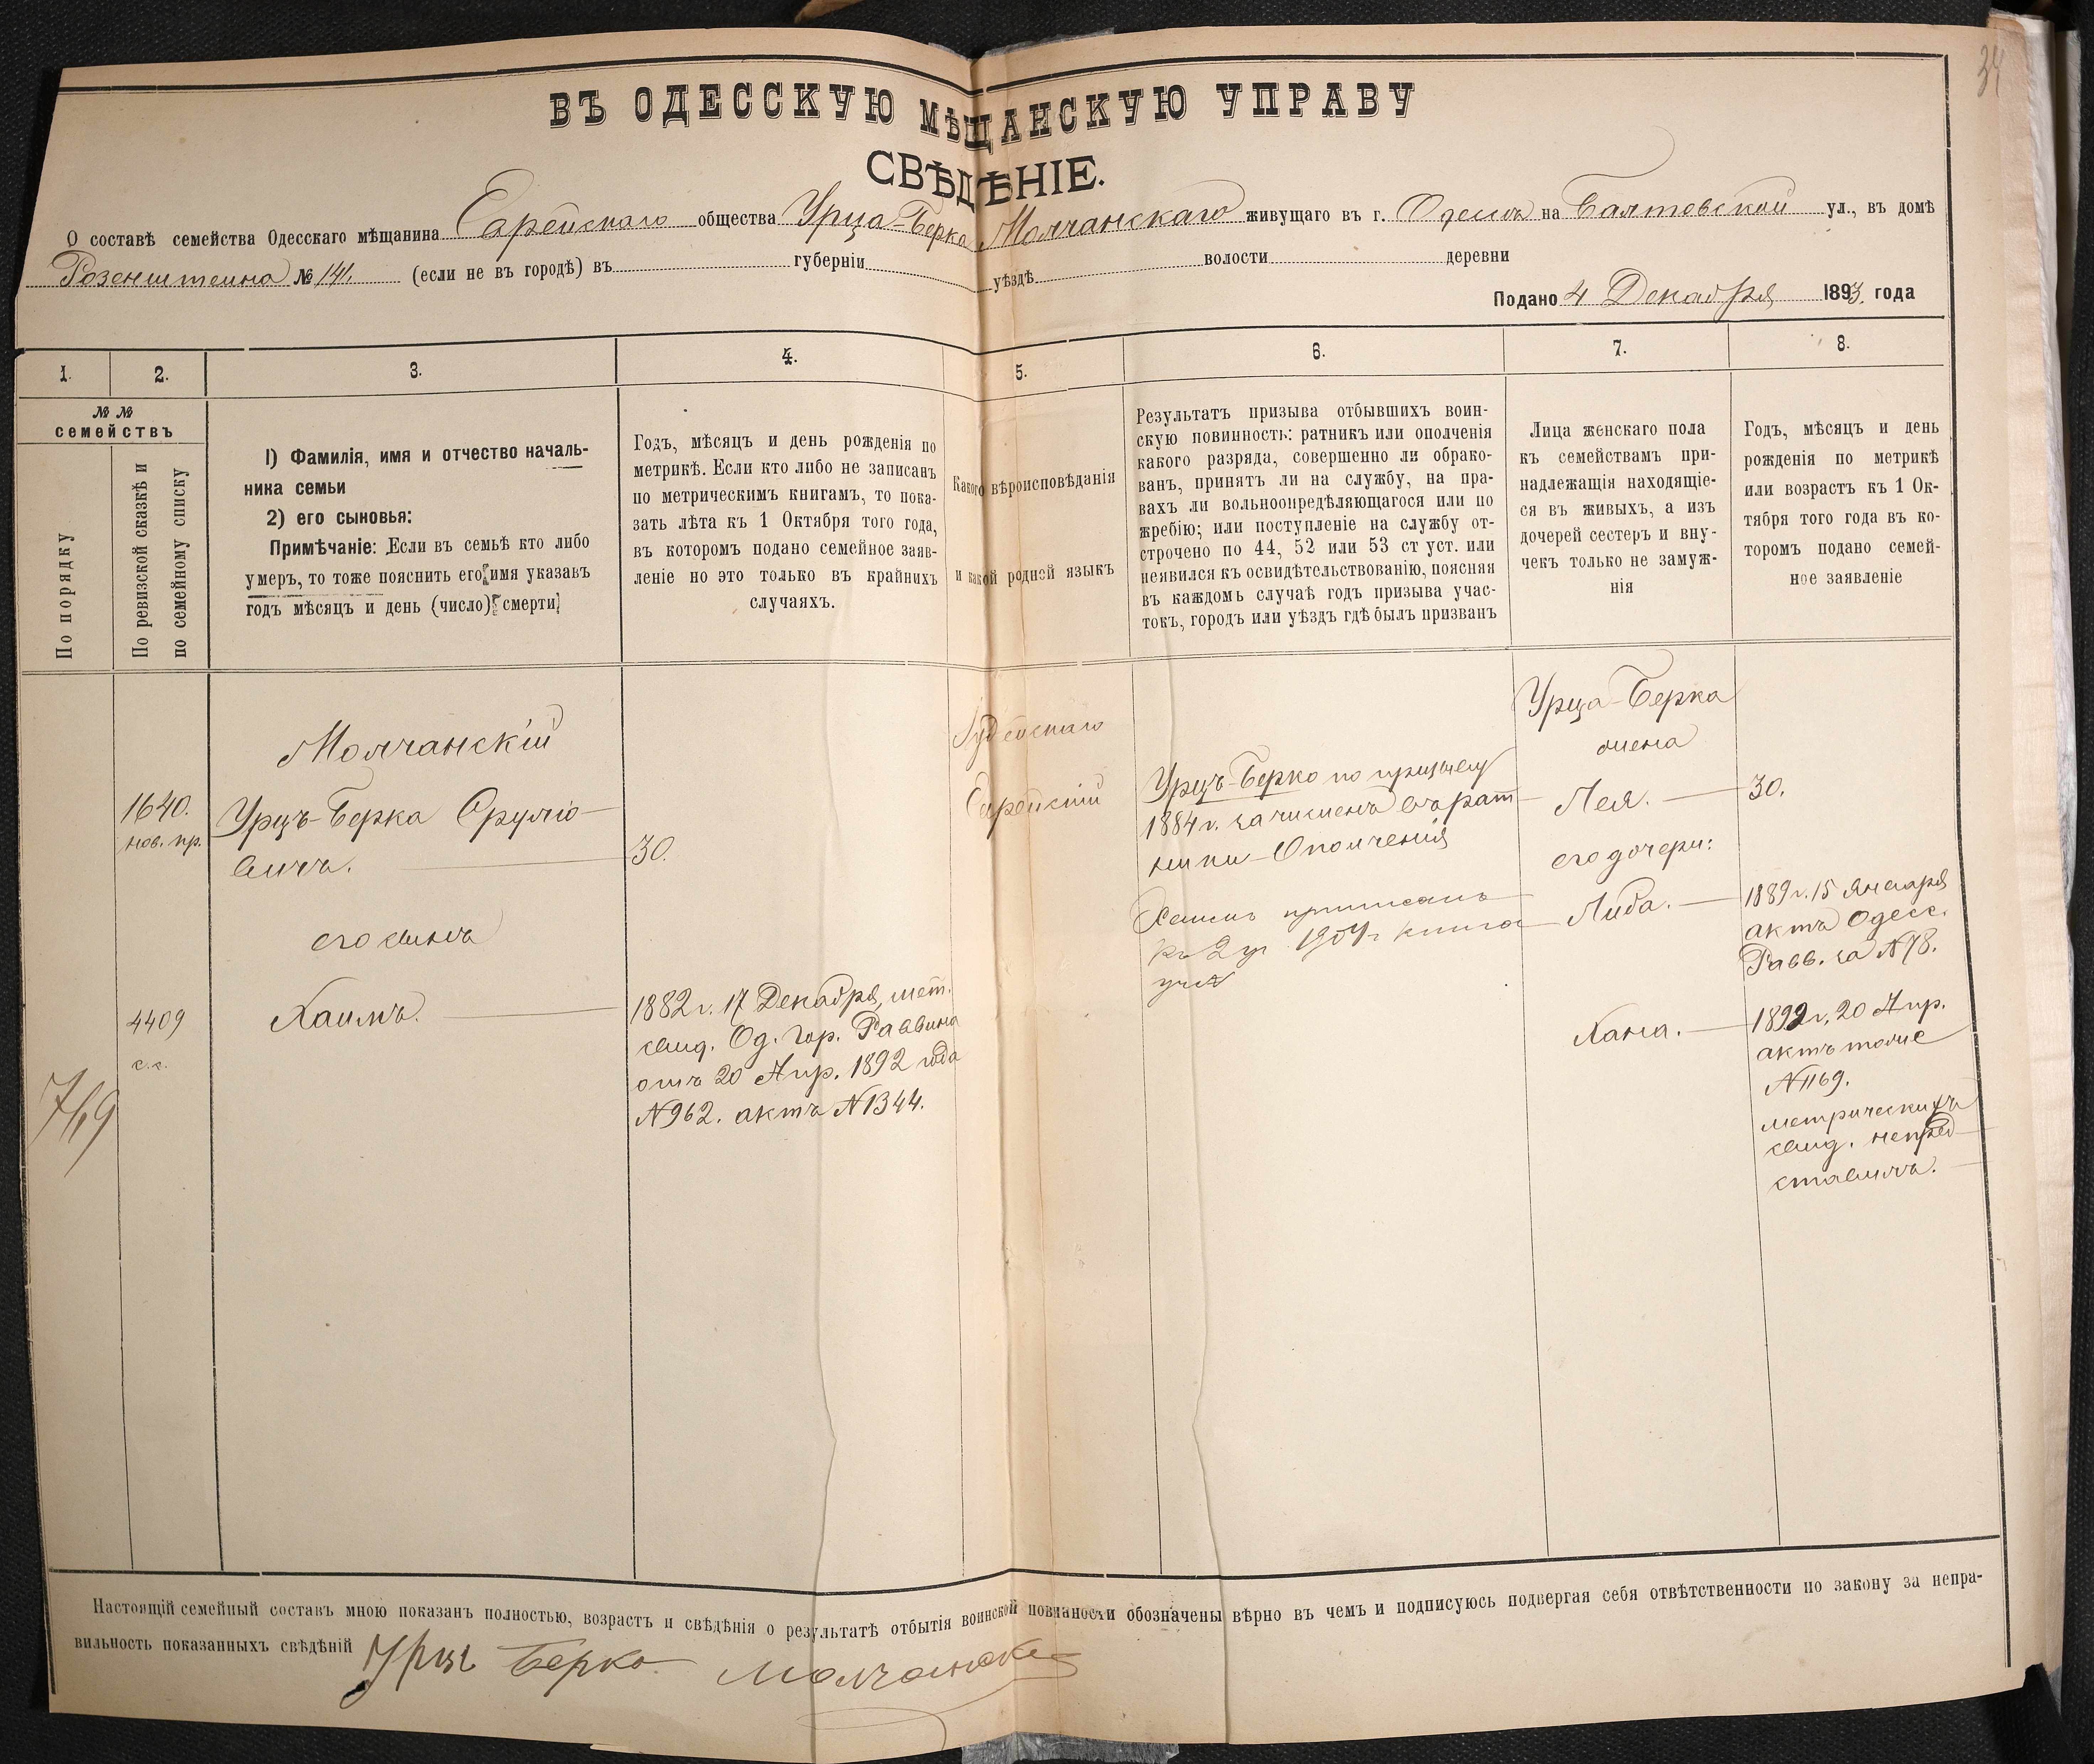 34
ВЪ ОДЕССКУЮ МѢЩАНСКУЮ УПРАВУ
СВѢДѢНІЕ.
О составѣ семейства Одесскаго мѣщанина Еврейскаго общества Урца-Берка Молчанскаго живущаго въ г. Одессѣ на Балтовской ул., въ домѣ
Розенштейна № 141. (если не въ городѣ) въ губерніи уѣздѣ волости деревни
Подано 4 Декабря 1893. года
1. 2. 3. 4. 5. 6. 7. 8.
№ №
семействъ
По порядку
По ревизской сказкѣ и
по семейному списку
1) Фамилія, имя и отчество началь-
ника семьи
2) его сыновья:
Примѣчаніе: Если въ семьѣ кто либо
умеръ, то тоже пояснить его имя указавъ
годъ мѣсяцъ и день (число) смерти
Годъ, мѣсяцъ и день рожденія по
метрикѣ. Если кто либо не записанъ
по метрическимъ книгамъ, то пока-
зать лѣта къ 1 Октября того года,
въ которомъ подано семейное заяв-
леніе но это только въ крайнихъ
случаяхъ.
Какого вѣроисповѣданія
и какой родней языкъ
Результатъ призыва отбывшихъ воин-
скую повинность: ратникъ или ополченія
какого разряда, совершенно ли обрако-
ванъ, принятъ ли на службу, на пра-
вахъ ли вольноопредѣляющагося или по
жребію; или поступленіе на службу от-
строчено по 44, 52 или 53 ст уст. или
неявился къ освидѣтельствованію, поясняя
въ каждомъ случаѣ годъ призыва учас-
токъ, городъ или уѣздъ гдѣ былъ призванъ
Лица женскаго пола
къ семействамъ при-
надлежащія находящіе-
ся въ живыхъ, а изъ
дочерей сестеръ и вну-
чекъ только не замуж-
нія
Годъ, мѣсяцъ и день
рожденія по метрикѣ
или возрастъ къ 1 Ок-
тября того года въ ко-
торомъ подано семей-
ное заявленіе
769
1640.
нов. пр.
4409
с.с.
Молчанскій
Урцъ-Берка Срулiо-
вичъ.
его сынъ
Хаимъ.
30.
1882 г. 17 Декабря, мет.
свид. Од. Гор. Раввина
отъ 20 Апр. 1892 года
№962. актъ №1344.
Іудейскаго
Еврейскій
Урцъ-Берко по призыву
1884 г. зачисленъ въ рат-
ники Ополченія
Хаимъ приписанъ
къ 2 уч 1904 г книга
Урца-Берка
жена
Лея.
его дочери:
Либа.
Хана.
30.
1889 г. 15 Января
актъ Одесс.
Равв. за №78.
1892 г. 20 Апр.
актъ тоже
№1169.
метрическихъ
свид. непред-
ставилъ.
Настоящій семейный составъ мною показанъ полностью, возрастъ и свѣдѣнія о результатѣ отбытія воинской повинности обозначены вѣрно въ чемъ и подписуюсь подвергая себя отвѣтственности по закону за непра-
вильность показанныхъ свѣдѣній Урцъ Берко Молчанске